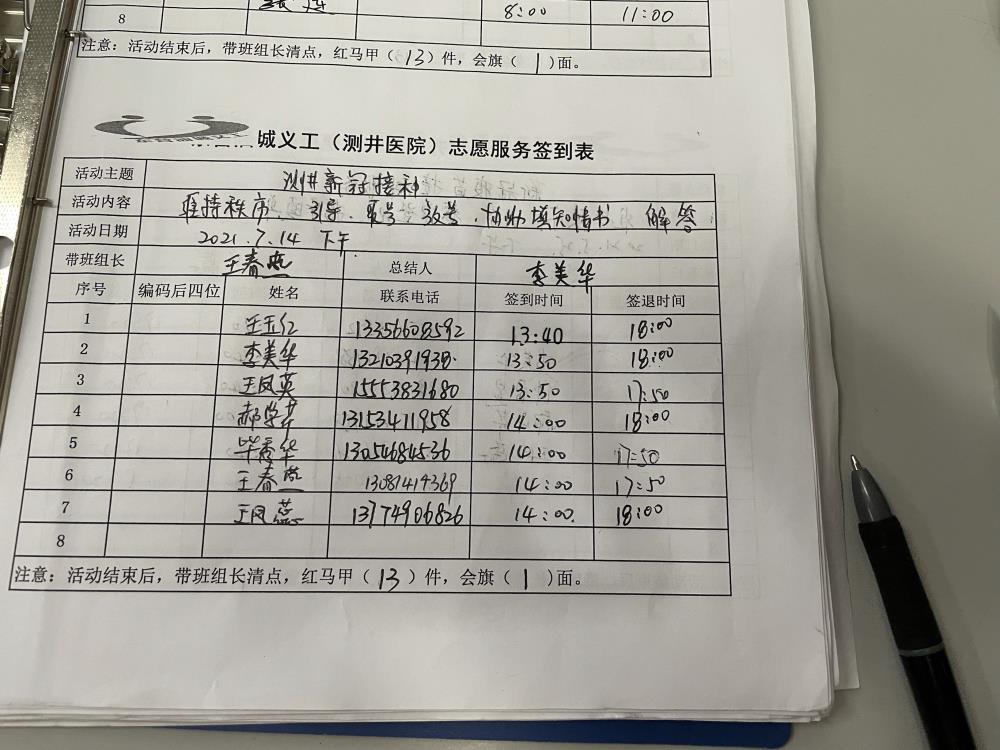 8:00 11:00
8
注意：活动结束后，带班组长清点，红马甲（13）件，会旗（ 1 ）面。
城义工（测井医院）志愿服务签到表
活动主题 测井新冠接种
活动内容 维持秩序 引导、取号 放号、协助填知情书 解答
活动日期 2021.7.14 下午
带班组长 王春 总结人 李美华
序号 编码后四位 姓名 联系电话 签到时间 签退时间
1 王玉红 13356608592 13:40 18:00
2 李美华 13210391938 13:50 18:00
3 王凤英 15553831680 13:50 17:50
4 郝学芹 13153411958 14:00 18:00
5 毕秀华 13054684536 14:00 17:50
6 王春 13087414369 14:00 17:50
7 王凤蕊 13774906826 14:00 18:00
8
注意：活动结束后，带班组长清点，红马甲（ 13 ）件，会旗（ 1 ）面。